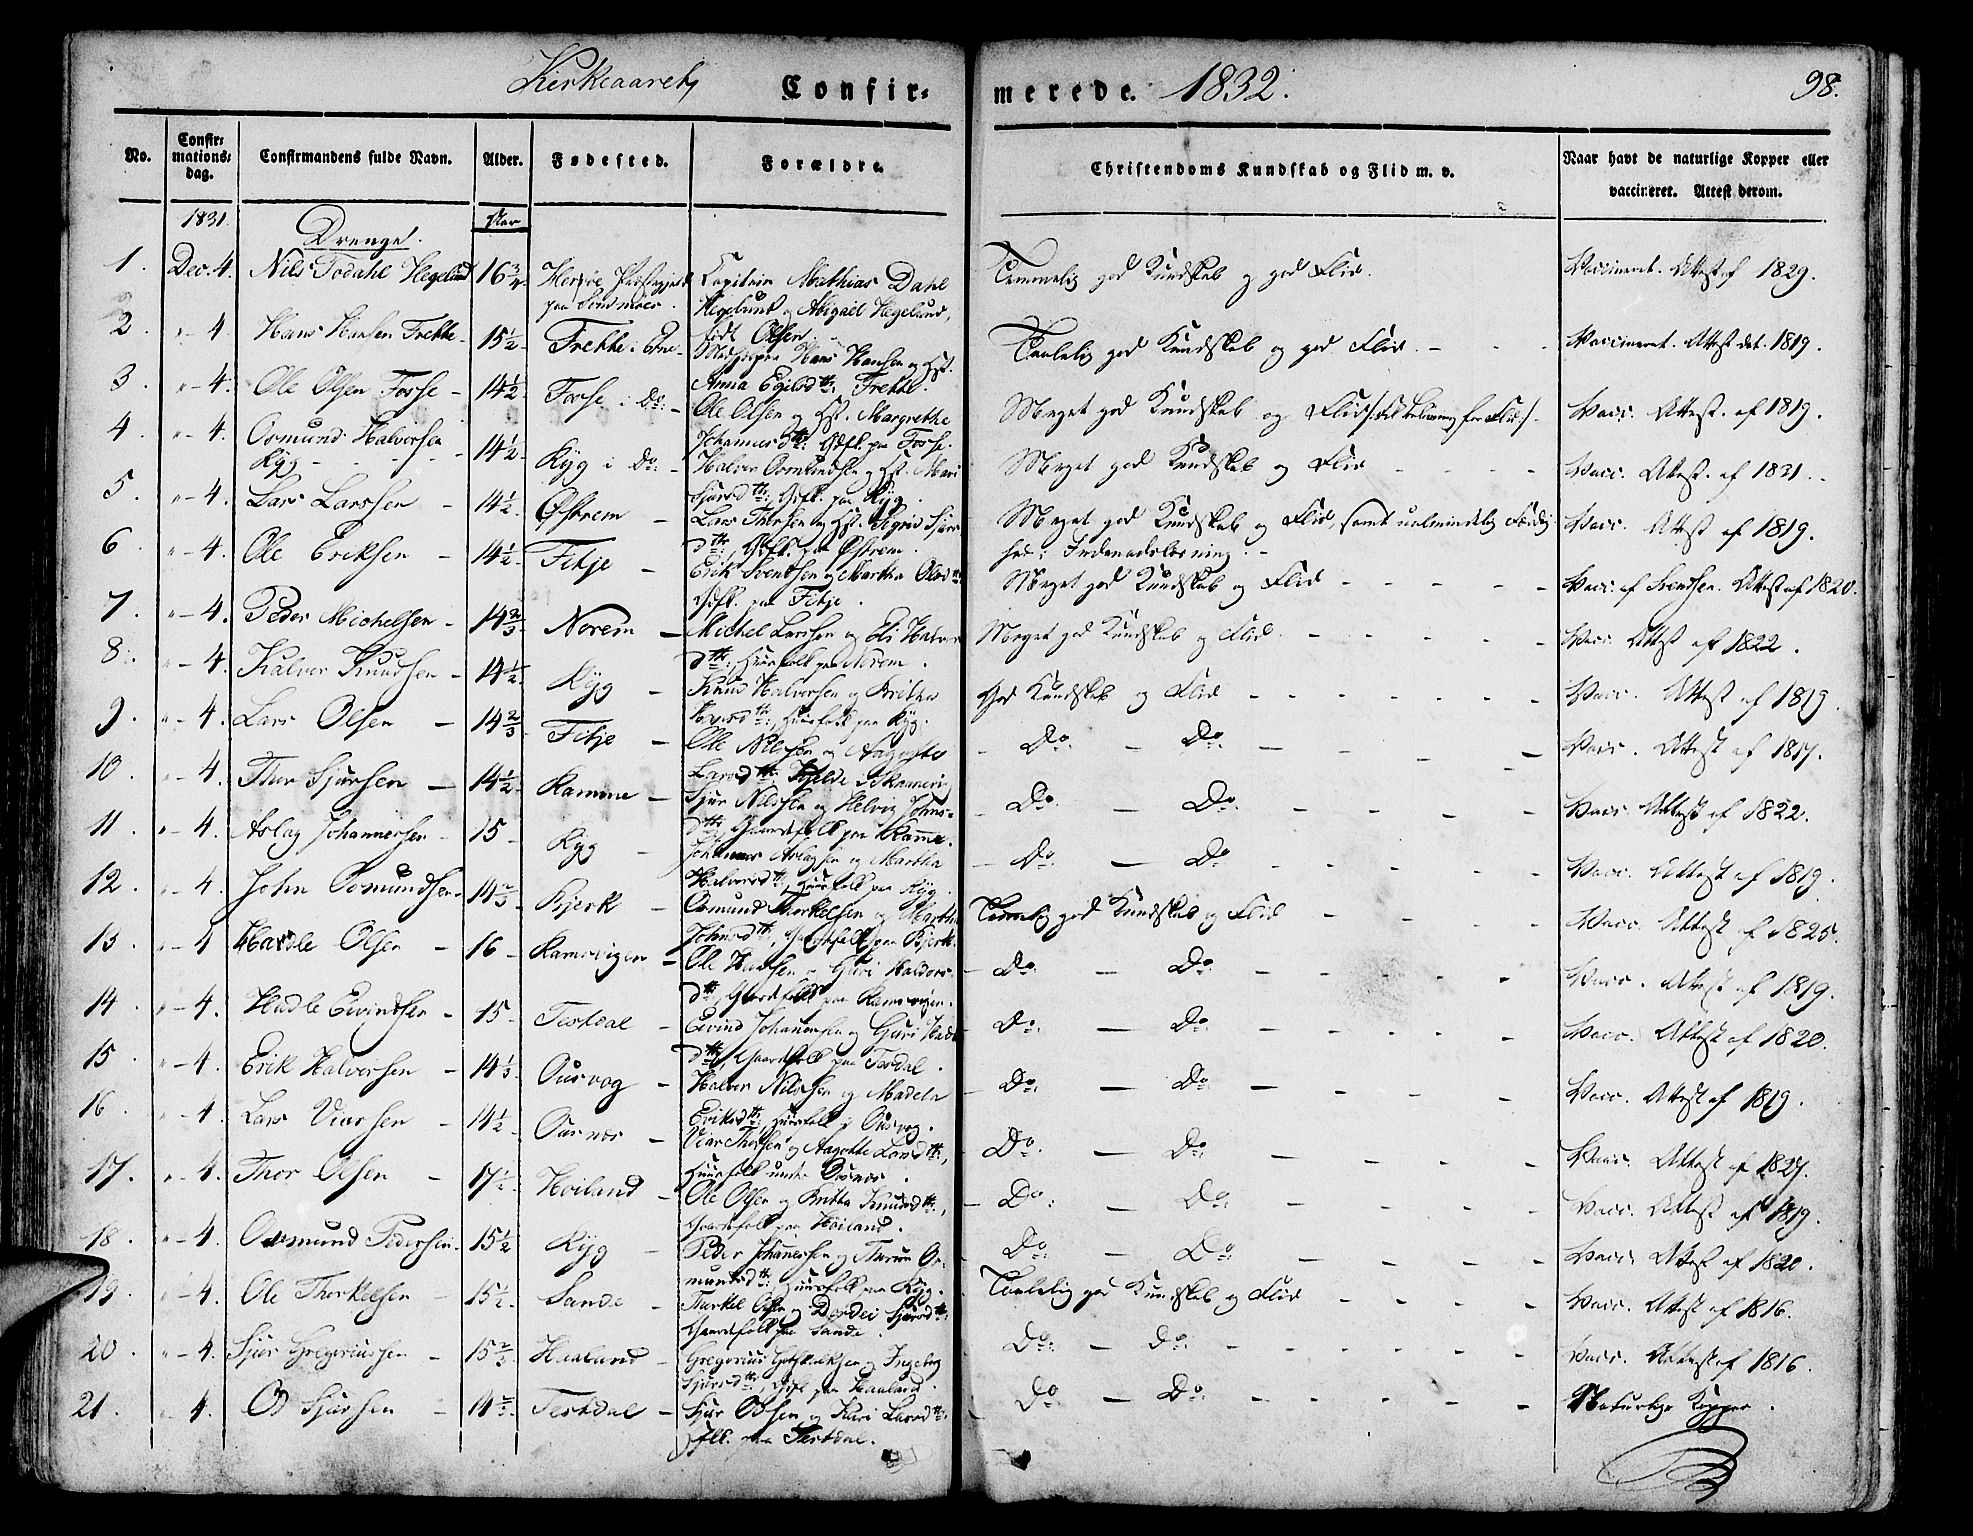 Kirkeaaret Confirmerede. 1832. 98.
No. Confirmationsdag. Confirmandens fulde Navn. Alder. Fødested. Forældre. Christendoms Kundskab og Flid m. v. Naar havt de naturlige Kopper eller vaccineret. Attest derom.
1831. Drenge. Aar
1. Dec. 4. Nils Todahl Hegelund 16 3/4 Herrøe Præstegjeld paa Søndmøer. Capitain Mathias Dahl Hegelund og Abigael Hegelund, født Olsen. Temmelig god Kundskab og god Flid. Vaccineret. Attest af 1829.
2. " - 4. Hans Hansen Frette - 15 1/2 Frette i Etne - Hans Hansen og Hst. Anna Egilsdtr: Frette. Taalelig god Kundskab og god Flid. - - - Vaccineret. Attest dat. 1819.
3. " - 4. Ole Olsen Fosse - 14 1/2 Fosse i Do: - Ole Olsen og Hst. Margrethe Johannesdtr: Gdfk. paa Fosse. Meget god Kundskab og Flid Vacc. Attest. af 1819.
4. " - 4. Osmund Halversen Ryg - - - 14 1/2 Ryg i Do: - Halver Osmundsen og Hst. Mari Sjursdtr: Gdfk. paa Ryg. Meget god Kundskab og Flid - - - - Vacc. Attest. af 1831. -
5. " - 4. Lars Larssen - 14 1/2 Østrem - Lars Thorsen og Hst. Sigrid Sjursdtr:, Gdfk. paa Østrem. Meget god Kundskab og Flid, samt ualmindelig Færdighed i Indenadslæsning. - Vacc. Attest af 1819.
6. " - 4. Ole Eriksen - 14 1/2 Fitje - Erik Svendsen og Martha Olsdtr: Gdfk. paa Fitje. Meget god Kundskab og Flid - - - - - Vacc. af Svendsen. Attest af 1820.
7. " - 4. Peder Michelsen - 14 2/3 Norem - Michel Larssen og Eli Halversdtr:, Huusfolk paa Norem. Meget god Kundskab og Flid. - - - - - Vacc. Attest af 1822.
8. " - 4. Halver Knudsen - 14 1/2 Ryg - Knud Halversen og Britha Huusfolk paa Ryg. God Kundskab og Flid - - - - - - Vacc. Attest af 1819.
9. " - 4. Lars Olsen - 14 2/3 Fitje - Ole Nilssen og Aagotte Larsdtr: - Do: - Do: - - - - - Vacc. Attest af 1817.
10. " - 4. Thor Sjursen - 14 1/2 Ramme - Sjur Nilssen og Helvig Johnsdtr:, Gaardfolk paa Ramme. - Do: - Do: - - - - - Vacc. Attest af 1822.
11. " - 4. Aslag Johannessen - 15 - Ryg - Johannes Aslagsen og Martha Halversdtr:, Huusfolk paa Ryg. - Do: - Do - - - - - Vacc. Attest af 1819.
12. " - 4. John Osmundsen - 14 2/3 Bjerk - Osmund Thorkelsen og Martha Johnsdtr:, Gaardfolk paa Bjerk. Temmelig god Kundskab og Flid - - - - - Vacc. Attest af 1825.
13. " - 4 Hardle Olsen - 16 - Ramsvigen - Ole Hansen og Guri Haldorsdtr:, Gaardfolk paa Ramsvigen. - Do: - Do: - - - - - Vacc. Attest af 1819.
14. " - 4. Hadle Eivindsen - 15 - Testdal - Eivind Johannesen og Guri dtr:, Gaardfolk paa Tesdal. - Do: - Do: - - - - - Vacc. Attest af 1820.
15 " - 4. Erik Halversen - 14 1/3 Ousvog - Halver Nilssen og Madela Eriksdtr:, Huusfolk i Ousvog. Do: - Do: - - - - - Vacc. Attest af 1819.
16. " - 4. Lars Viarsen - 14 1/2 Ousnes - Viar Thorsen og Aagotte Larsdtr:, Huusfolk Ousnes. Do: - Do: - - - - - Vacc. Attest af 1827.
17. " - 4. Thor Olsen - 17 1/2 Høiland - Ole Olsen og Britha Knudsdtr:, Gaardfolk paa Høiland. - Do: - Do: - - - - - Vacc. Attest af 1819.
18. " - 4. Osmund Pedersen. 15 1/2 Ryg - Peder Johannessen og Osmundsdtr: Huusfolk paa Ryg. Do: - Do: - - - - Vacc. Attest af 1820.
19. " - 4. Ole Thorkelsen - 15 1/2 Sande - Thorkel Olsen og Dordei Sjursdtr: Gaardfolk paa Sande. Taalelig god Kundskab og Flid - - - - Vacc. Attest af 1816.
20. " - 4. Sjur Gregoriussen - 15 2/3 Haaland - Gregorius Gotskalksen og Ingeborg Sjursdtr:, Gdfk paa Haaland. Do: - do: - - - - - Vacc. Attest af 1816.
21. " - 4. Od Sjursen - 14 2/3 Testdal - Sjur Odsen og Kari Larsdtr: paa Testdal. Do - Do: - - - - - Naturlige Kopper.